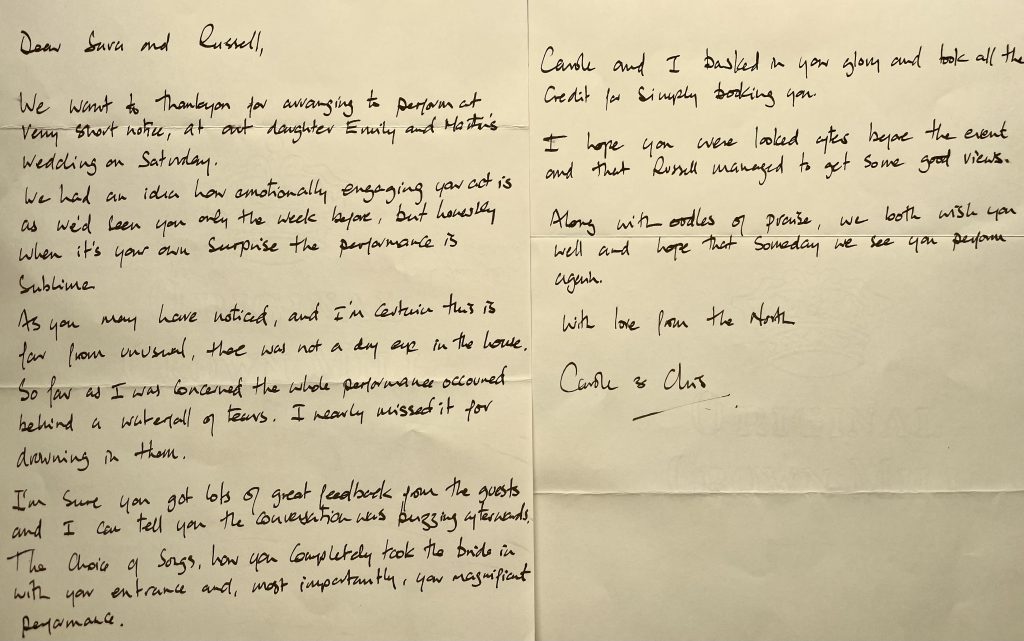 Dear Sara and Russell,
We want to thankyou for arranging to perform at
very short notice, at out daughter Emily and Martin's
wedding on Saturday.
We had an idea how emotionally engaging your act is
as we'd seen you only the week before, but honestly
when it's your own surprise the performance is
Sublime
As you may have noticed, and I'm certain this is
far from unusual, there was not a dry eye in the house.
So far as I was concerned the whole performance occurred
behind a waterfall of tears. I nearly missed it for
drowning in them.
I'm sure you got lots of great feedback from the guests
and I can tell you the conversation was buzzing afterwards.
The choice of songs, how you completely took the bride in
with your entrance and, most importantly, your magnificent
performance.
Carole and I basked in your glory and took all the
credit for simply booking you.
I hope you were looked after before the event
and that Russell managed to get some good views.
Along with oodles of praise, we both wish you
well and hope that someday we see you perform
again.
With love from the North
Carole & Chris